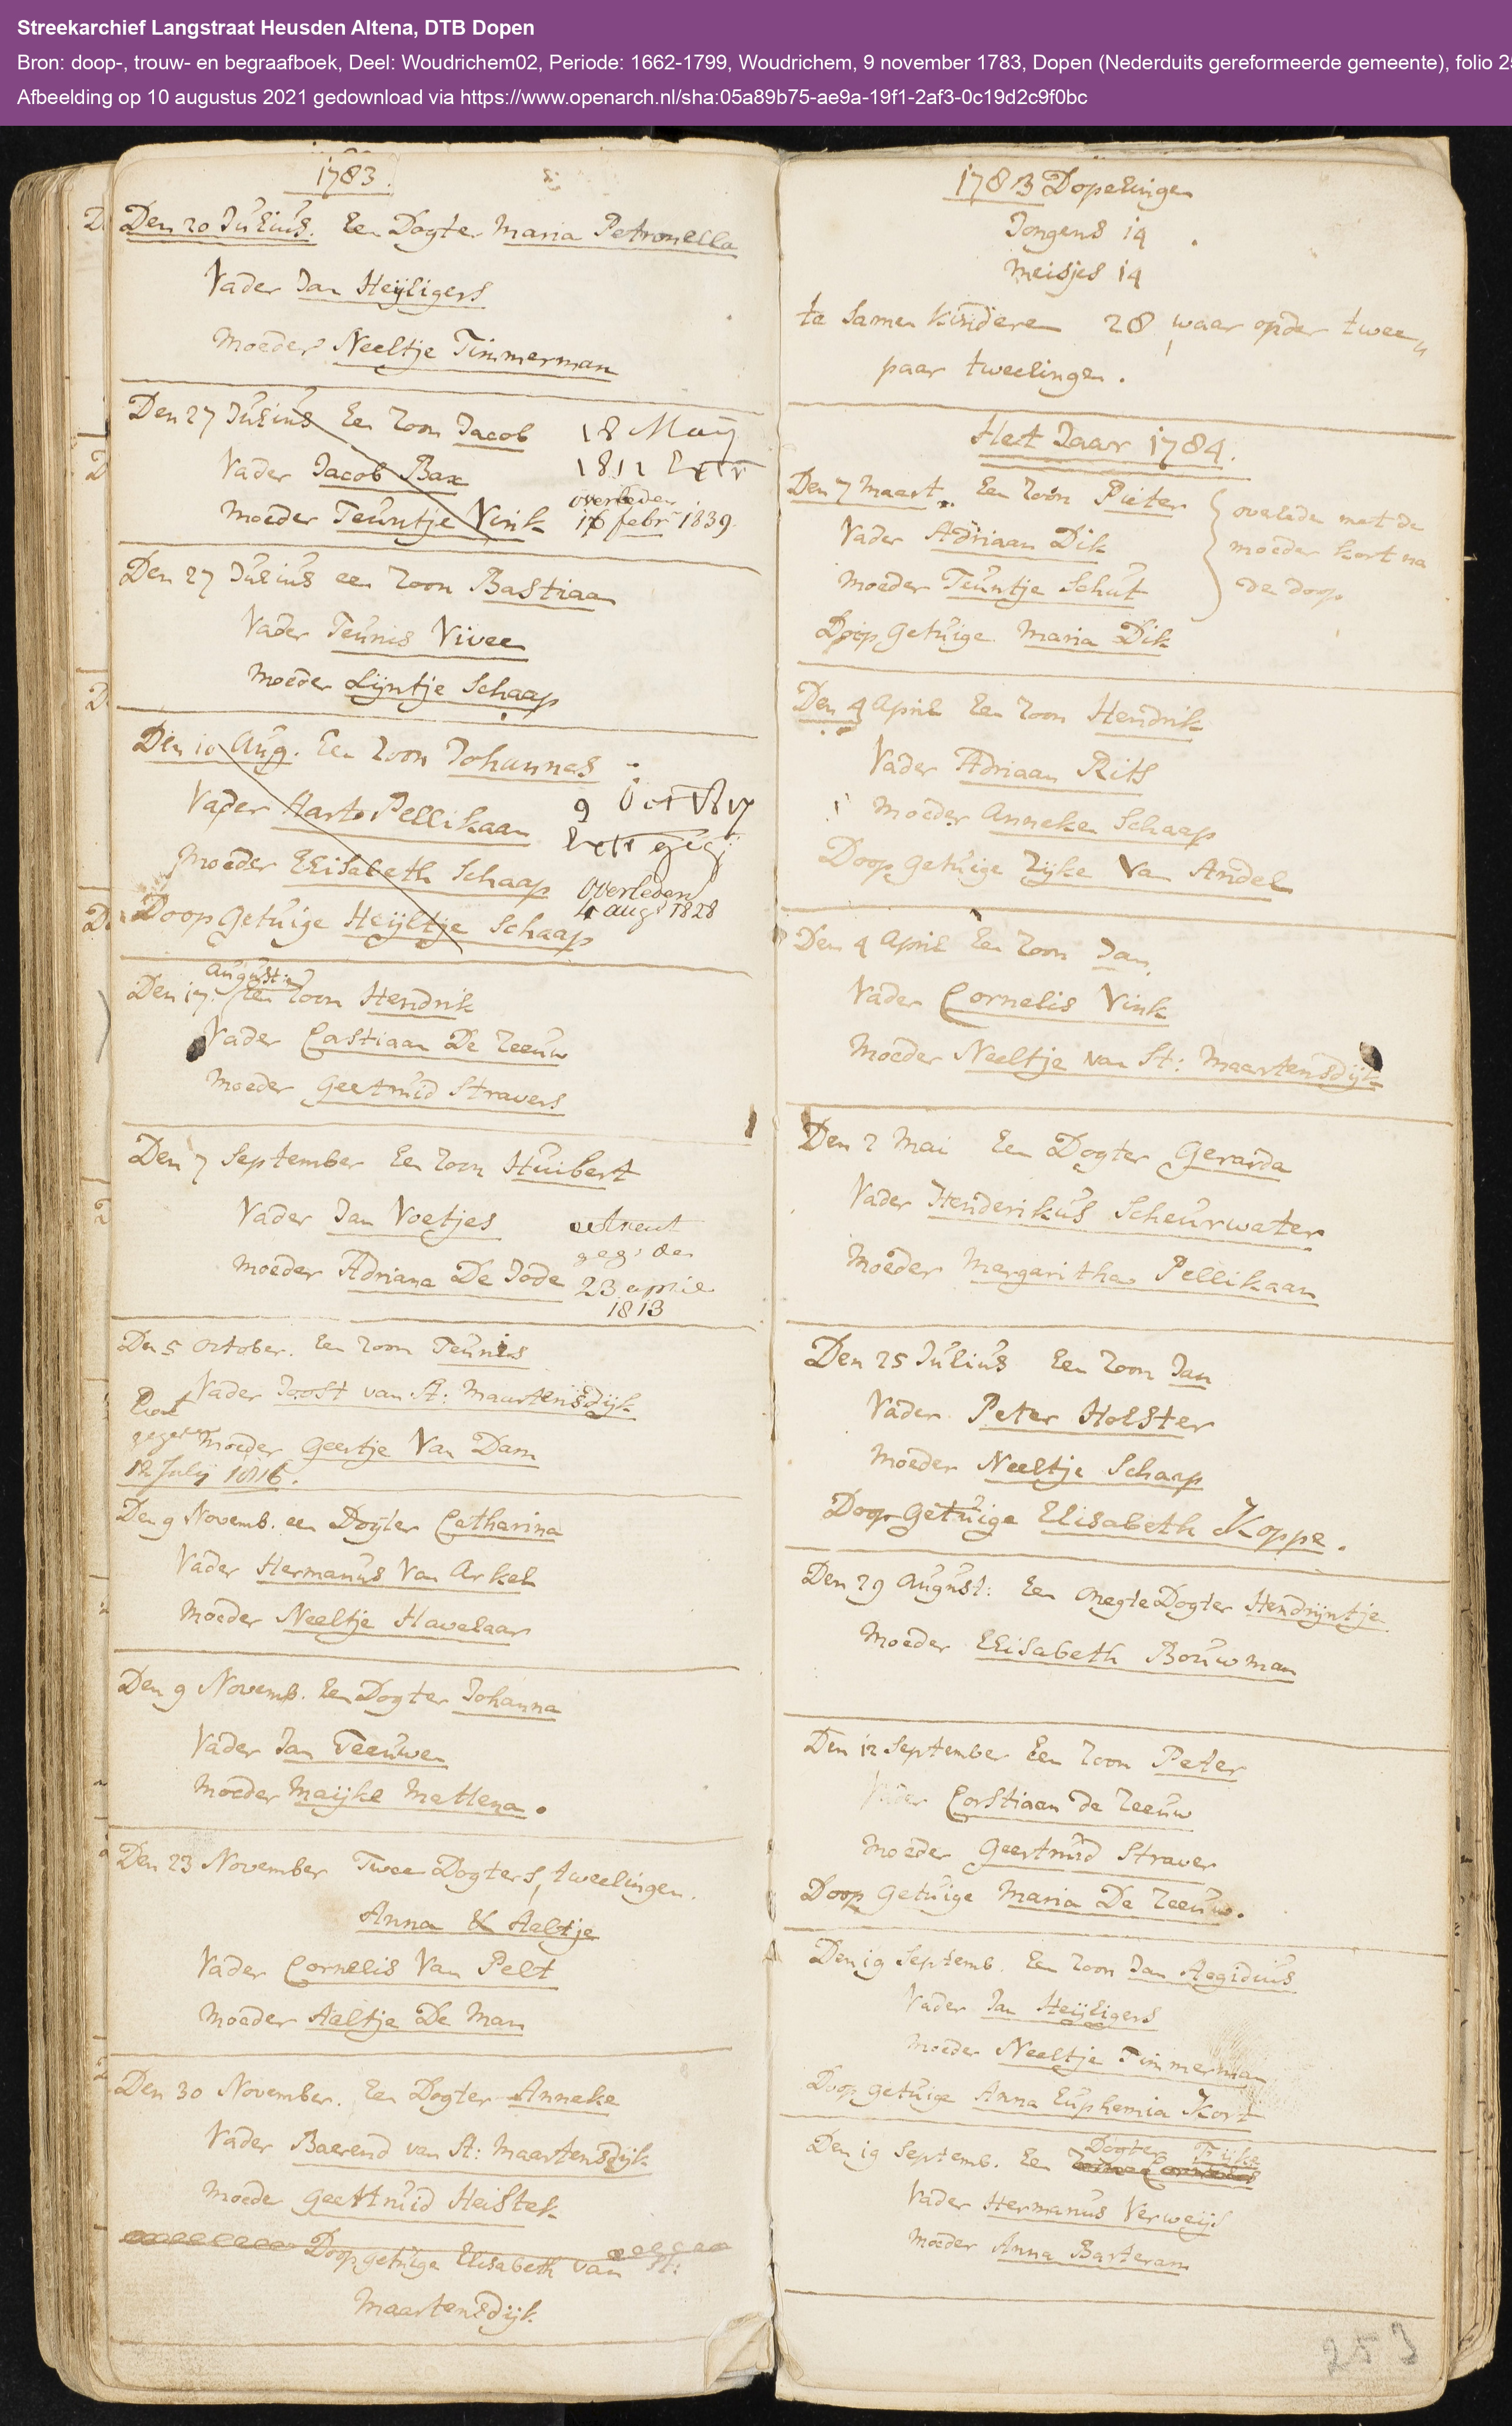 Streekarchief Langstraat Heusden Altena, DTB Dopen
Bron: doop-, trouw- en begraafboek, Deel: Woudrichem02, Periode: 1662-1799, Woudrichem, 9 november 1783, Dopen (Nederduits gereformeerde gemeente), folio 2
Afbeelding op 10 augustus 2021 gedownload via https://www.openarch.nl/sha:05a89b75-ae9a-19f1-2af3-0c19d2c9f0bc
1783.
Den 20 Julius. Een Dogter Maria Petronella
Vader Jan Heÿligers
Moeder Neeltje Timmerman
Den 27 Julius Een Zoon Jacob 18 Maÿ
Vader Jacob Bax 1811 Extr
Moeder Teuntje Vink overleden
16 febr 1839.
Den 27 Julius een Zoon Bastiaan
Vader Teunis Vivee
Moeder Lijntje Schaap
Den 10 Aug. Een Zoon Johannes
Vader Hart Pellikaan 9 Oct 1817
Extr geg:
Moeder Elisabeth Schaap overleden
4 augs 1828
Doop getuige Heÿltje Schaap
Augusti:
Den 17. Een Zoon Hendrik
Vader Corstiaan De Zeeuw
Moeder Geertruid Stravers
Den 7 September Een Zoon Huibert
Vader Jan Voetjes extract
geg: den
Moeder Adriana De Jode 23 april
1813
Den 5 October. Een Zoon Teunis
Vader Joost van St: Maartensdijk
Moeder Geertje Van Dam
12 Julÿ 1816.
Den 9 Novemb. een Dogter Catharina
Vader Hermanus Van Arkel
Moeder Neeltje Havelaar
Den 9 Novemb. Een Dogter Johanna
Vader Jan Teeuwen
Moeder Maijke Mattena.
Den 23 November Twee Dogters, tweelingen.
Anna & Aaltje
Vader Cornelis Van Pelt
Moeder Aaltje De Man
Den 30 November. Een Dogter Anneke
Vader Baerend van St: Maartensdijk
Moeder Geertruid Heistek
Doop getuige Elisabeth van St:
Maartensdijk
1783 Dopelingen
Jongens 14
Meisjes 14
te samen kinderen 28, waar onder twee
paar tweelingen.
Het Jaar 1784.
Den 7 Maart. Een Zoon Pieter overleden met de
Vader Adriaan Dik moeder kort na
Moeder Teuntje Schut de doop
Doop getuige Maria Dik
Den 4 April Een Zoon Hendrik
Vader Adriaan Rits
Moeder Anneke Schaap
Doop getuige Zijke Van Andel
Den 4 April Een Zoon Jan
Vader Cornelis Vink
Moeder Neeltje van St: Maartensdijk
Den 2 Mai Een Dogter Gerarda
Vader Henderikus Scheurwater
Moeder Margaritha Pellikaan
Den 25 Julius Een Zoon Jan
Vader Peter Holster
Moeder Neeltje Schaap
Doop getuige Elisabeth Koppe.
Den 29 August: Een onegte Dogter Hendrijntje
Moeder Elisabeth Bouwman
Den 12 September Een Zoon Peter
Vader Corstiaan De Zeeuw
Moeder Geertruid Straver
Doop getuige Maria De Zeeuw.
Den 19 Septemb. Een Zoon Jan Aegidius
Vader Jan Heÿligers
Moeder Neeltje Timmerman
Doop getuige Anna Euphemia Kort
Den 19 Septemb. Een Dogter
Vader Hermanus Verweij
Moeder Anna Barteram
253